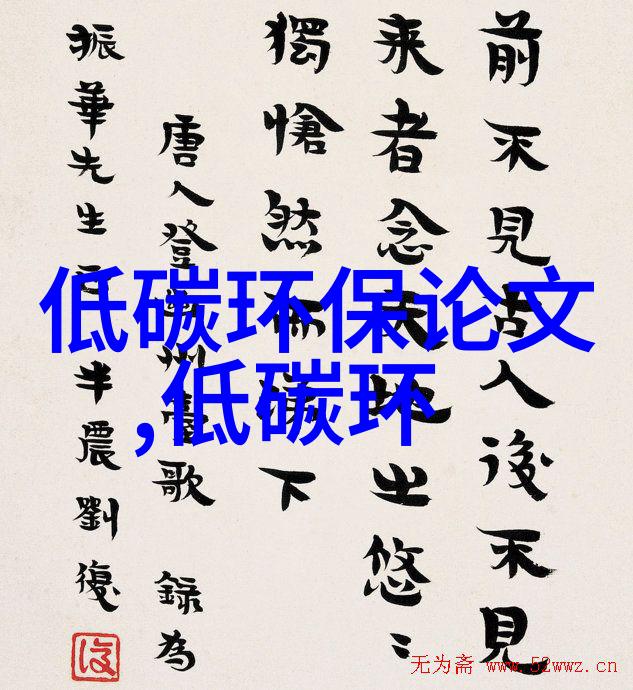 前不見古人後不見
来者念天地之悠〻
獨愴然而涕下
唐人登幽州臺歌 錄為
振華先生 半農劉復
復
低碳环保论文
,低碳环
无为斋 www.52wwz.cn